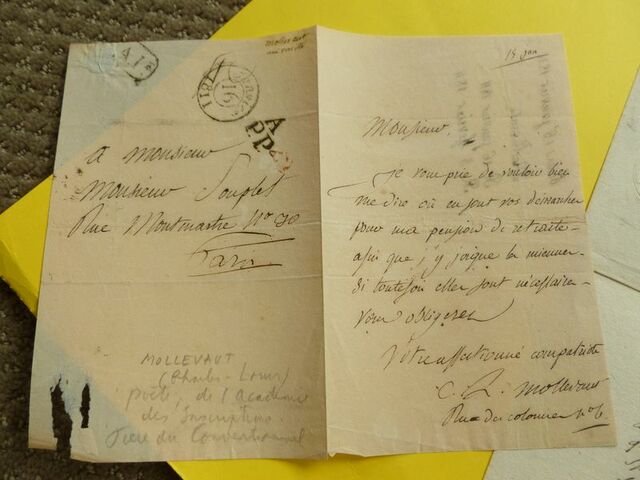 A. 1e
1841
16
A
PP
mollevaut
a monsieur
monsieur Souplet
Rue Montmartre No 70
Paris
MOLLEVAUT
(Charles-Louis)
poète, de l'Académie
des Inscriptions
du Conventionnel
18 jan
Monsieur
je vous prie de vouloir bien
me dire où en sont vos démarches
pour ma pension de retraite
afin que j'y joigne la mienne
si toutefois elles sont nécessaires
vous obligerez
Votre affectionné compatriote
C. L. mollevaut
Rue du colombier no 6